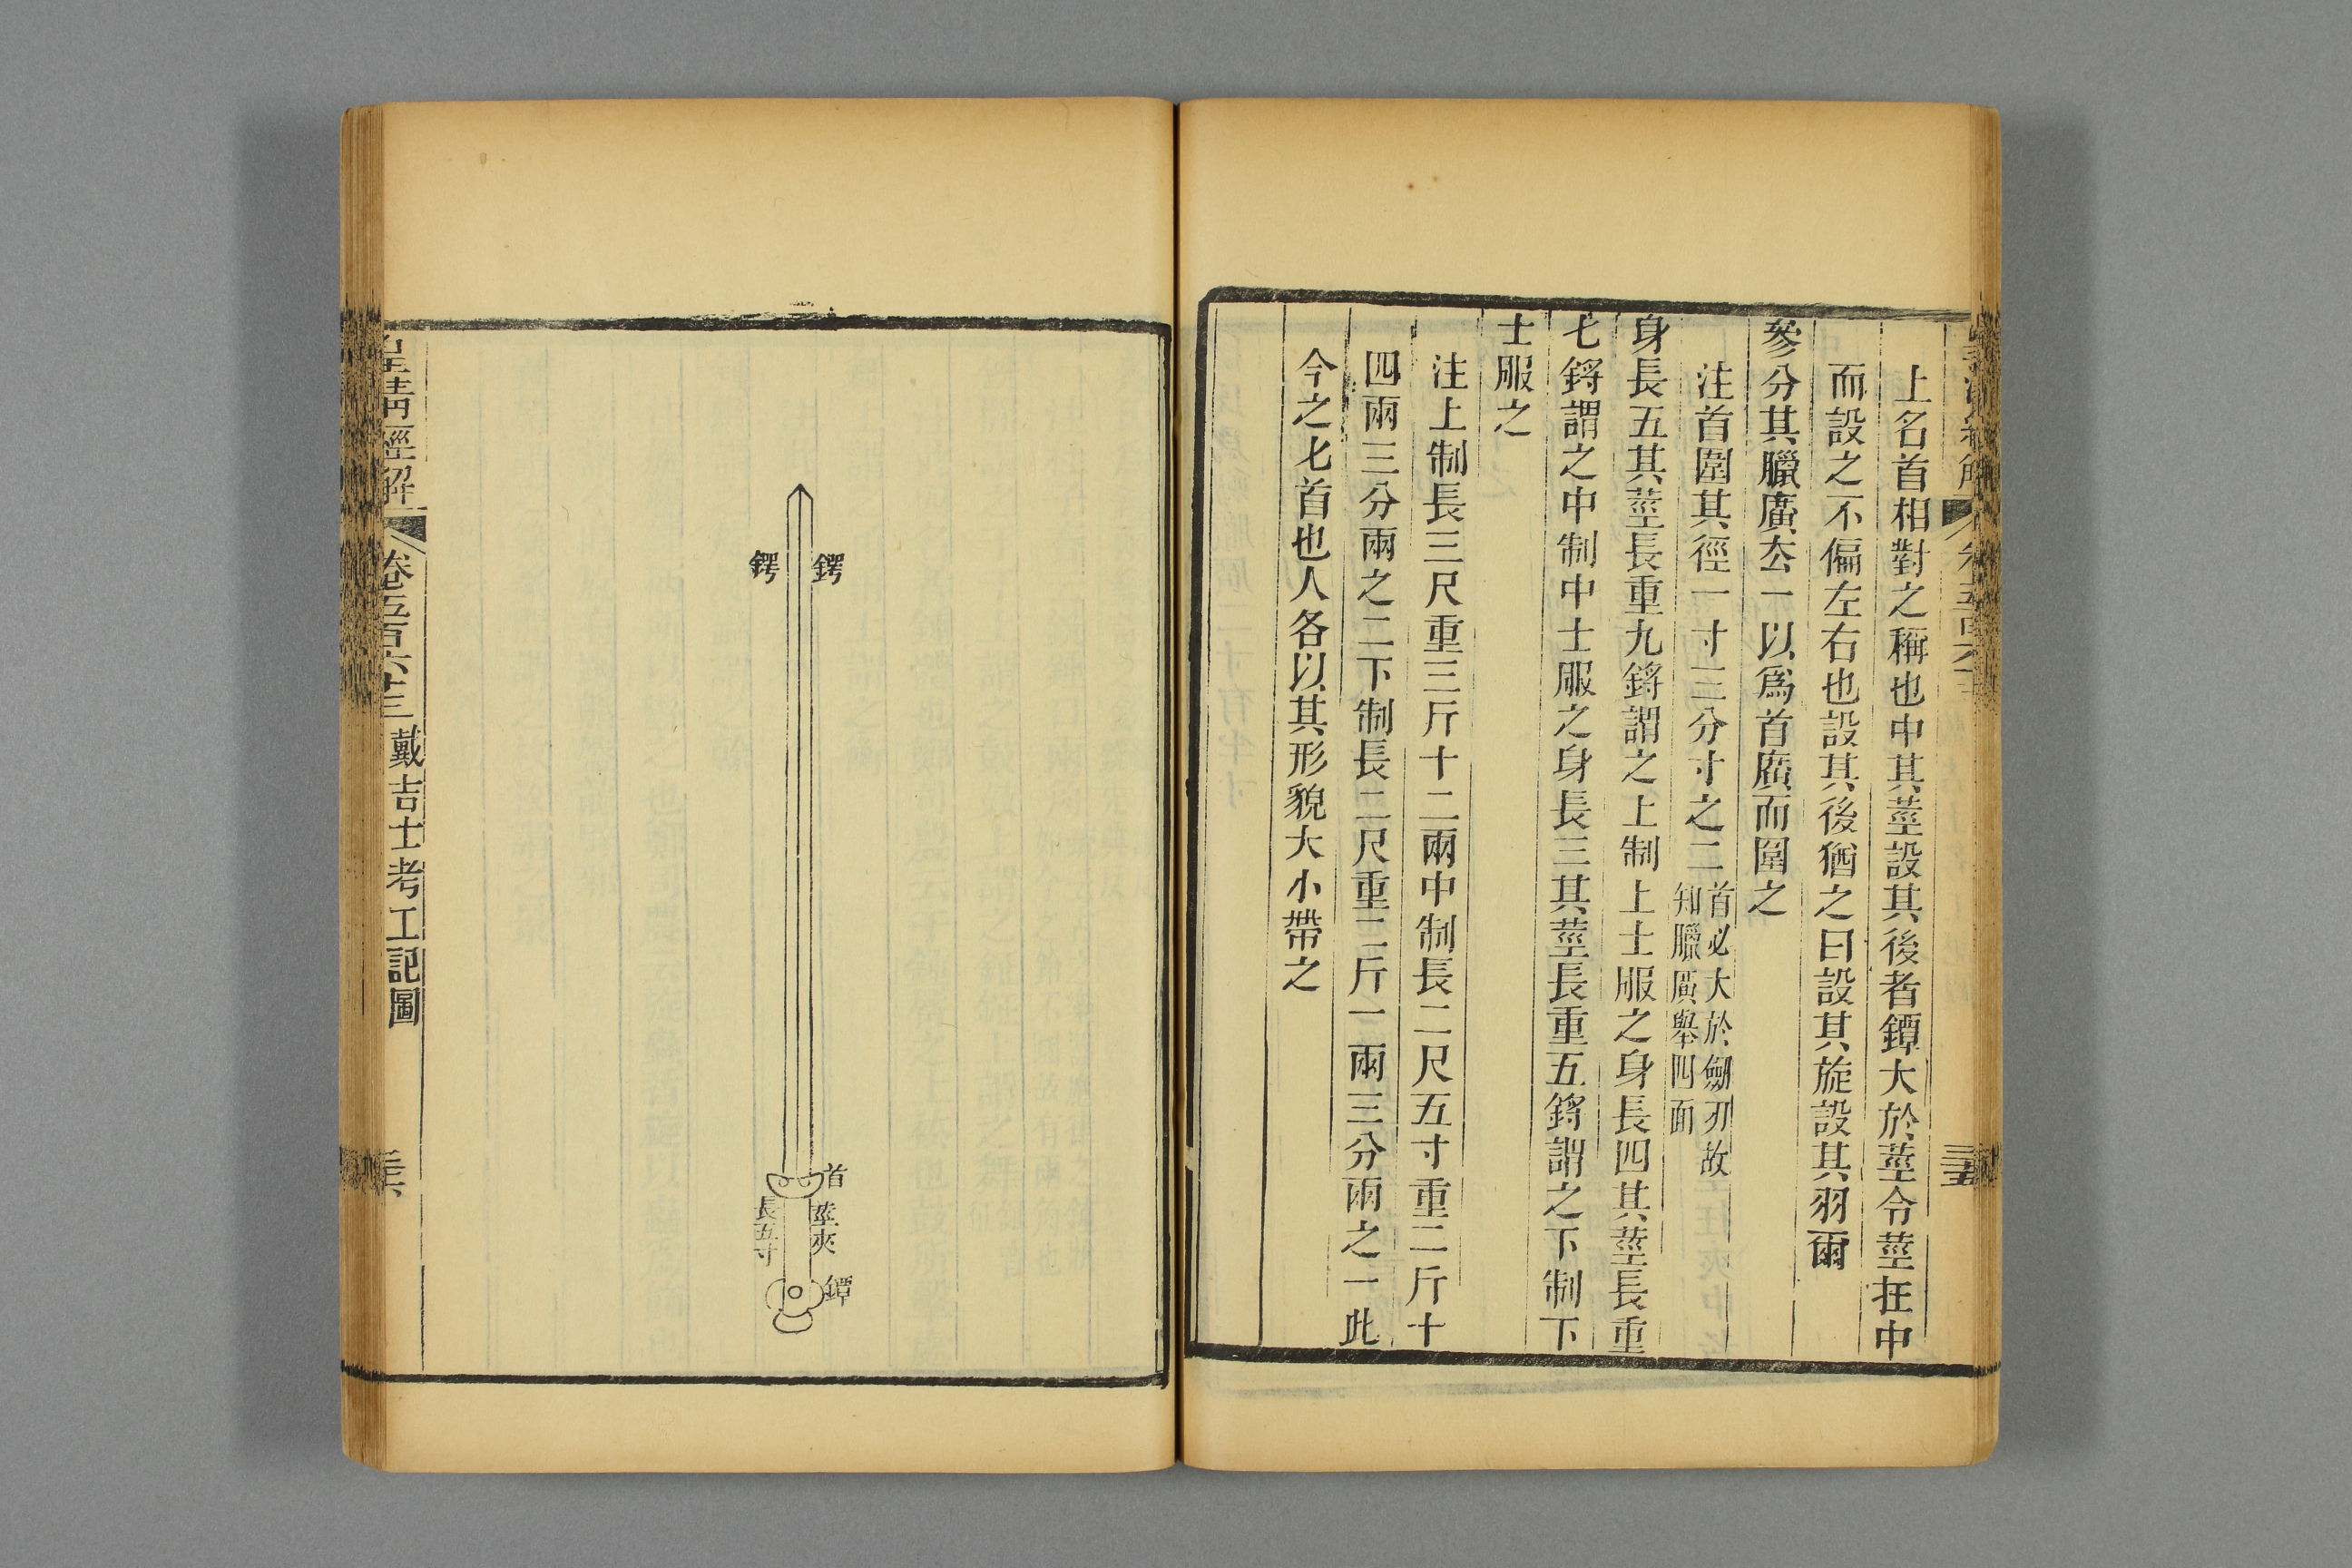 上名首相對之稱也中其莖設其後者鐔大於莖令莖在中
而設之不偏左右也設其後猶之曰設其旋設其羽爾
參分其臘廣去一以爲首廣而圍之
注首圍其徑一寸三分寸之二首必大於劒刃故
知臘廣舉四面
身長五其莖長重九鋝謂之上制上士服之身長四其莖長重
七鋝謂之中制中士服之身長三其莖長重五鋝謂之下制下
士服之
注上制長三尺重三斤十二兩中制長二尺五寸重二斤十
四兩三分兩之二下制長二尺重二斤一兩三分兩之一此
今之匕首也人各以其形貌大小帶之
三十五
鍔
鍔
首
莖夾
長五寸
鐔
皇清經解
卷五百六十三
戴吉士考工記圖
三十六